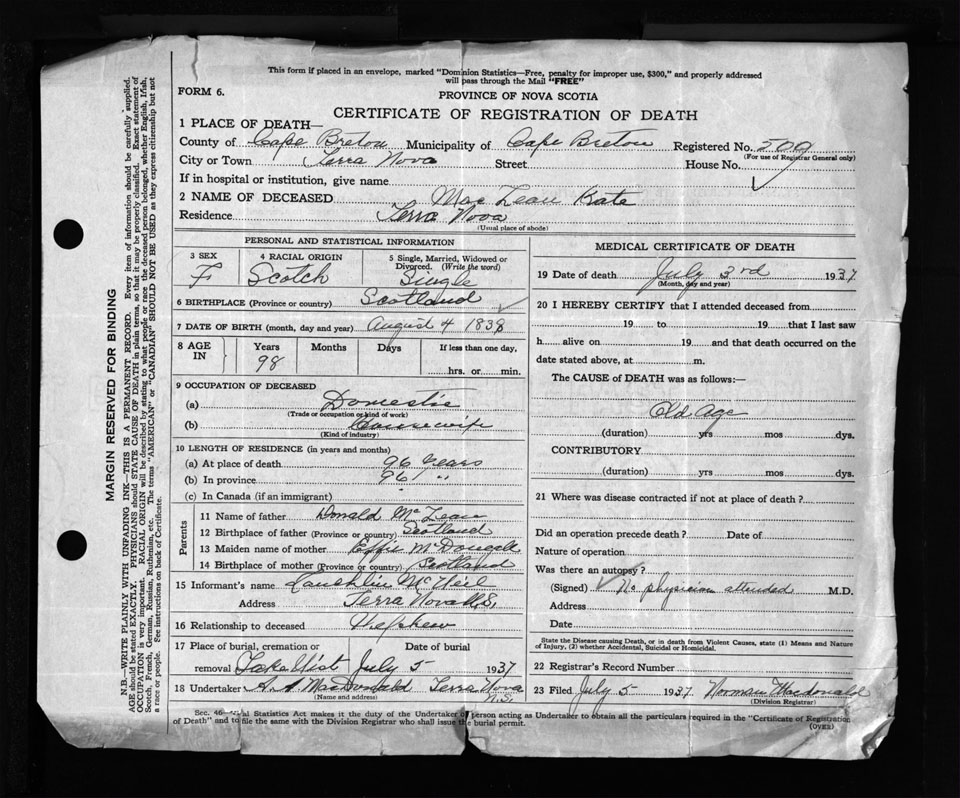 This form if placed in an envelope, marked "Dominion Statistics—Free, penalty for improper use, $300," and properly addressed
will pass through the Mail "FREE"
FORM 6.
PROVINCE OF NOVA SCOTIA
CERTIFICATE OF REGISTRATION OF DEATH
1 PLACE OF DEATH—
County of Cape Breton Municipality of Cape Breton Registered No. 500
(For use of Registrar General only)
City or Town Terra Nova Street House No.
If in hospital or institution, give name
2 NAME OF DECEASED Mac Lean Kate
Residence Terra Nova
(Usual place of abode)
PERSONAL AND STATISTICAL INFORMATION
3 SEX F
4 RACIAL ORIGIN Scotch
5 Single, Married, Widowed or
Divorced. (Write the word)
Single
6 BIRTHPLACE (Province or country) Scotland
7 DATE OF BIRTH (month, day and year) August 4 1838
8 AGE IN Years Months Days If less than one day,
98 hrs. or min.
9 OCCUPATION OF DECEASED
(a) Domestic
(Trade or occupation or kind of work)
(b) Housewife
(Kind of industry)
10 LENGTH OF RESIDENCE (in years and months)
(a) At place of death 96 years
(b) In province 96 "
(c) In Canada (if an immigrant)
Parents
11 Name of father Donald McLean
12 Birthplace of father (Province or country) Scotland
13 Maiden name of mother Effie McDougall
14 Birthplace of mother (Province or country) Scotland
15 Informant's name Lauchlin McNeil
Address Terra Nova N.S.
16 Relationship to deceased Nephew
17 Place of burial, cremation or Date of burial
removal Lake Uist July 5 1937
18 Undertaker A. A. MacDonald Terra Nova
(Name and address) N.S.
MEDICAL CERTIFICATE OF DEATH
19 Date of death July 3rd 1937
(Month, day and year)
20 I HEREBY CERTIFY that I attended deceased from
19 to 19 that I last saw
h alive on 19 and that death occurred on the
date stated above, at m.
The CAUSE of DEATH was as follows:—
Old Age
(duration) yrs mos dys.
CONTRIBUTORY
(duration) yrs mos dys.
21 Where was disease contracted if not at place of death?
Did an operation precede death? Date of
Nature of operation
Was there an autopsy?
(Signed) No physician attended M.D.
Address
Date
State the Disease causing Death, or in death from Violent Causes, state (1) Means and Nature
of Injury, (2) whether Accidental, Suicidal or Homicidal.
22 Registrar's Record Number
23 Filed July 5 1937. Norman Macdonald
(Division Registrar)
Sec. 46— Statistics Act makes it the duty of the Undertaker or person acting as Undertaker to obtain all the particulars required in the "Certificate of Registration
of Death" and to file the same with the Division Registrar who shall issue the burial permit.
(OVER)
MARGIN RESERVED FOR BINDING
N.B.—WRITE PLAINLY WITH UNFADING INK—THIS IS A PERMANENT RECORD. Every item of information should be carefully supplied.
AGE should be stated EXACTLY. PHYSICIANS should STATE CAUSE OF DEATH in plain terms, so that it may be properly classified. Exact statement of
OCCUPATION is very important. RACIAL ORIGIN will be described by stating to what people or race the deceased person belonged, whether English, Irish,
Scotch, French, German, Russian, Ruthenian, etc. The terms "AMERICAN" or "CANADIAN" SHOULD NOT BE USED as they express citizenship but not
a race or people. See instructions on back of Certificate.